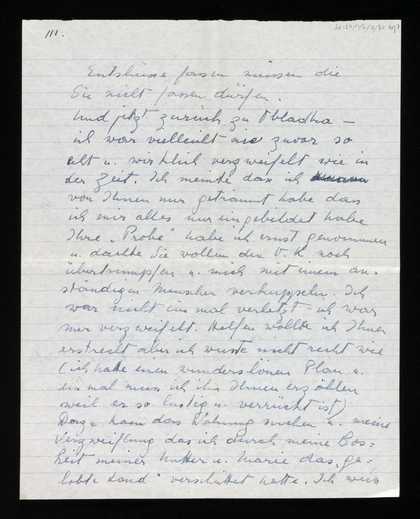 III.
Entschlüsse fassen müssen die
Sie nicht fassen dürfen.
Und jetzt zurück zu Obladha –
ich war vielleicht nie zuvor so
alt u. wirklich verzweifelt wie in
der Zeit. Ich meinte dax ich
von Ihnen nur getraumt habe das
ich mir alles nur eingebildet habe
Ihre „Probe" habe ich ernst genommen
u. dachte Sie wollen den V. K. noch
übertrumpfen u. mich mit einem an-
ständigen Menschen verkuppeln. Ich
war nicht ein mal verletzt – ich war
nur verzweifelt. Helfen wollte ich Ihnen
erst recht aber ich wuste nicht recht wie
(ich hatte einen wunderschönen Plan u.
ein mal muss ich ihn Ihnen erzählen
weil er so lustig u. verrückt ist)
Dazu kam das Wohnung suchen u. meine
Verzweiflung das ich durch meine Bos=
heit meiner Mutter u. Marie das „ge-
lobte Land" verschüttet hatte. Ich weis